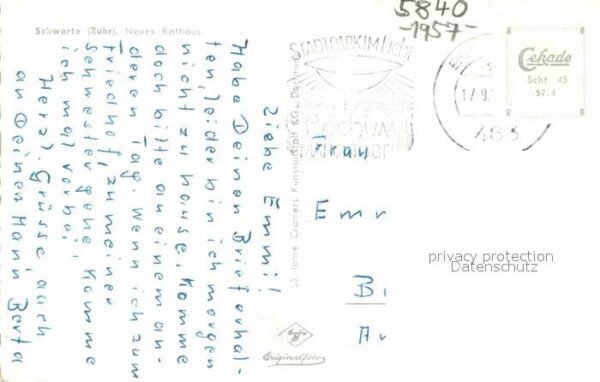 5840
-1957-
Schwerte (Ruhr). Neues Rathaus
STADTPARK IM Licht
Cekade
Scht 45
57.3
17.9.
463
Liebe Emmi!
Habe Deinen Brief erhal-
ten, leider bin ich morgen
nicht zu hause. Komme
doch bitte an einem an-
deren Tag. Wenn ich zum
Friedhof, zu meiner
Schwester gehe, komme
ich mal vorbei.
Herzl. Grüsse, auch
an Deinen Mann Berta
Jahre Cramers Kunstanstalt KG., Dortmund
Frau
Originalfoto
privacy protection
Datenschutz